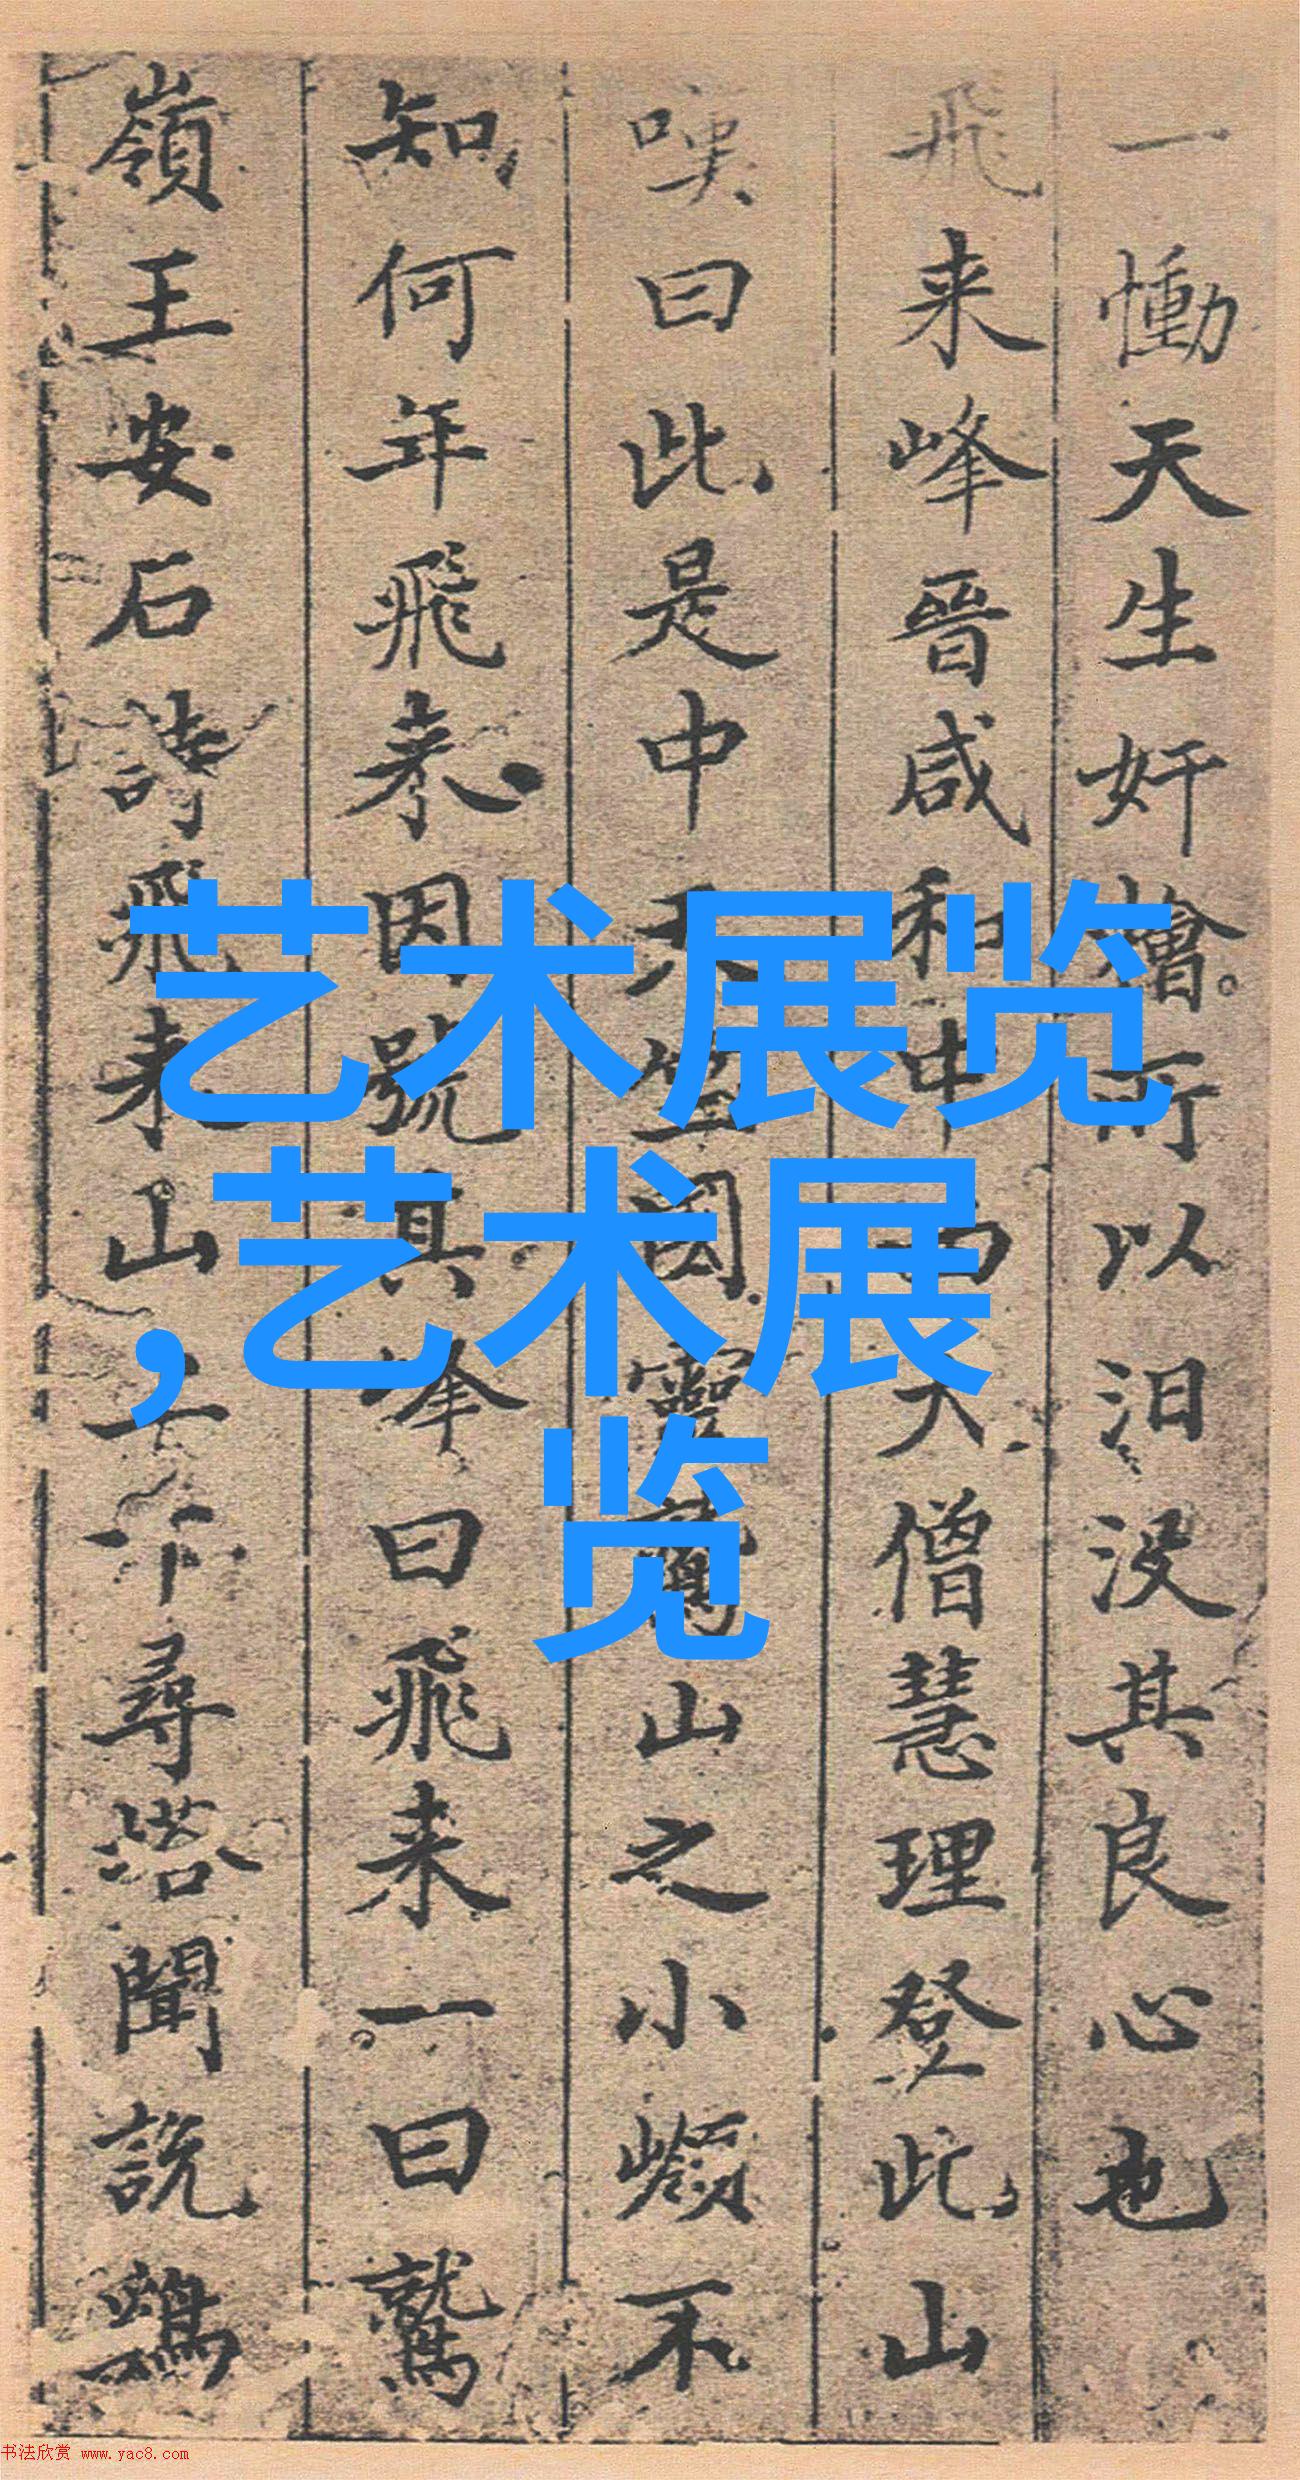 一慟天生奸檜所以汨没其良心也
飛来峰晉咸和中西天僧慧理登此山
嘆曰此是中天竺國靈鷲山之小嶺不
知何年飛来因號其峰曰飛来一曰鷲
嶺王安石詩飛来山上千尋塔聞說鷄
艺术展览
,艺术展
览
书法欣赏 www.yac8.com